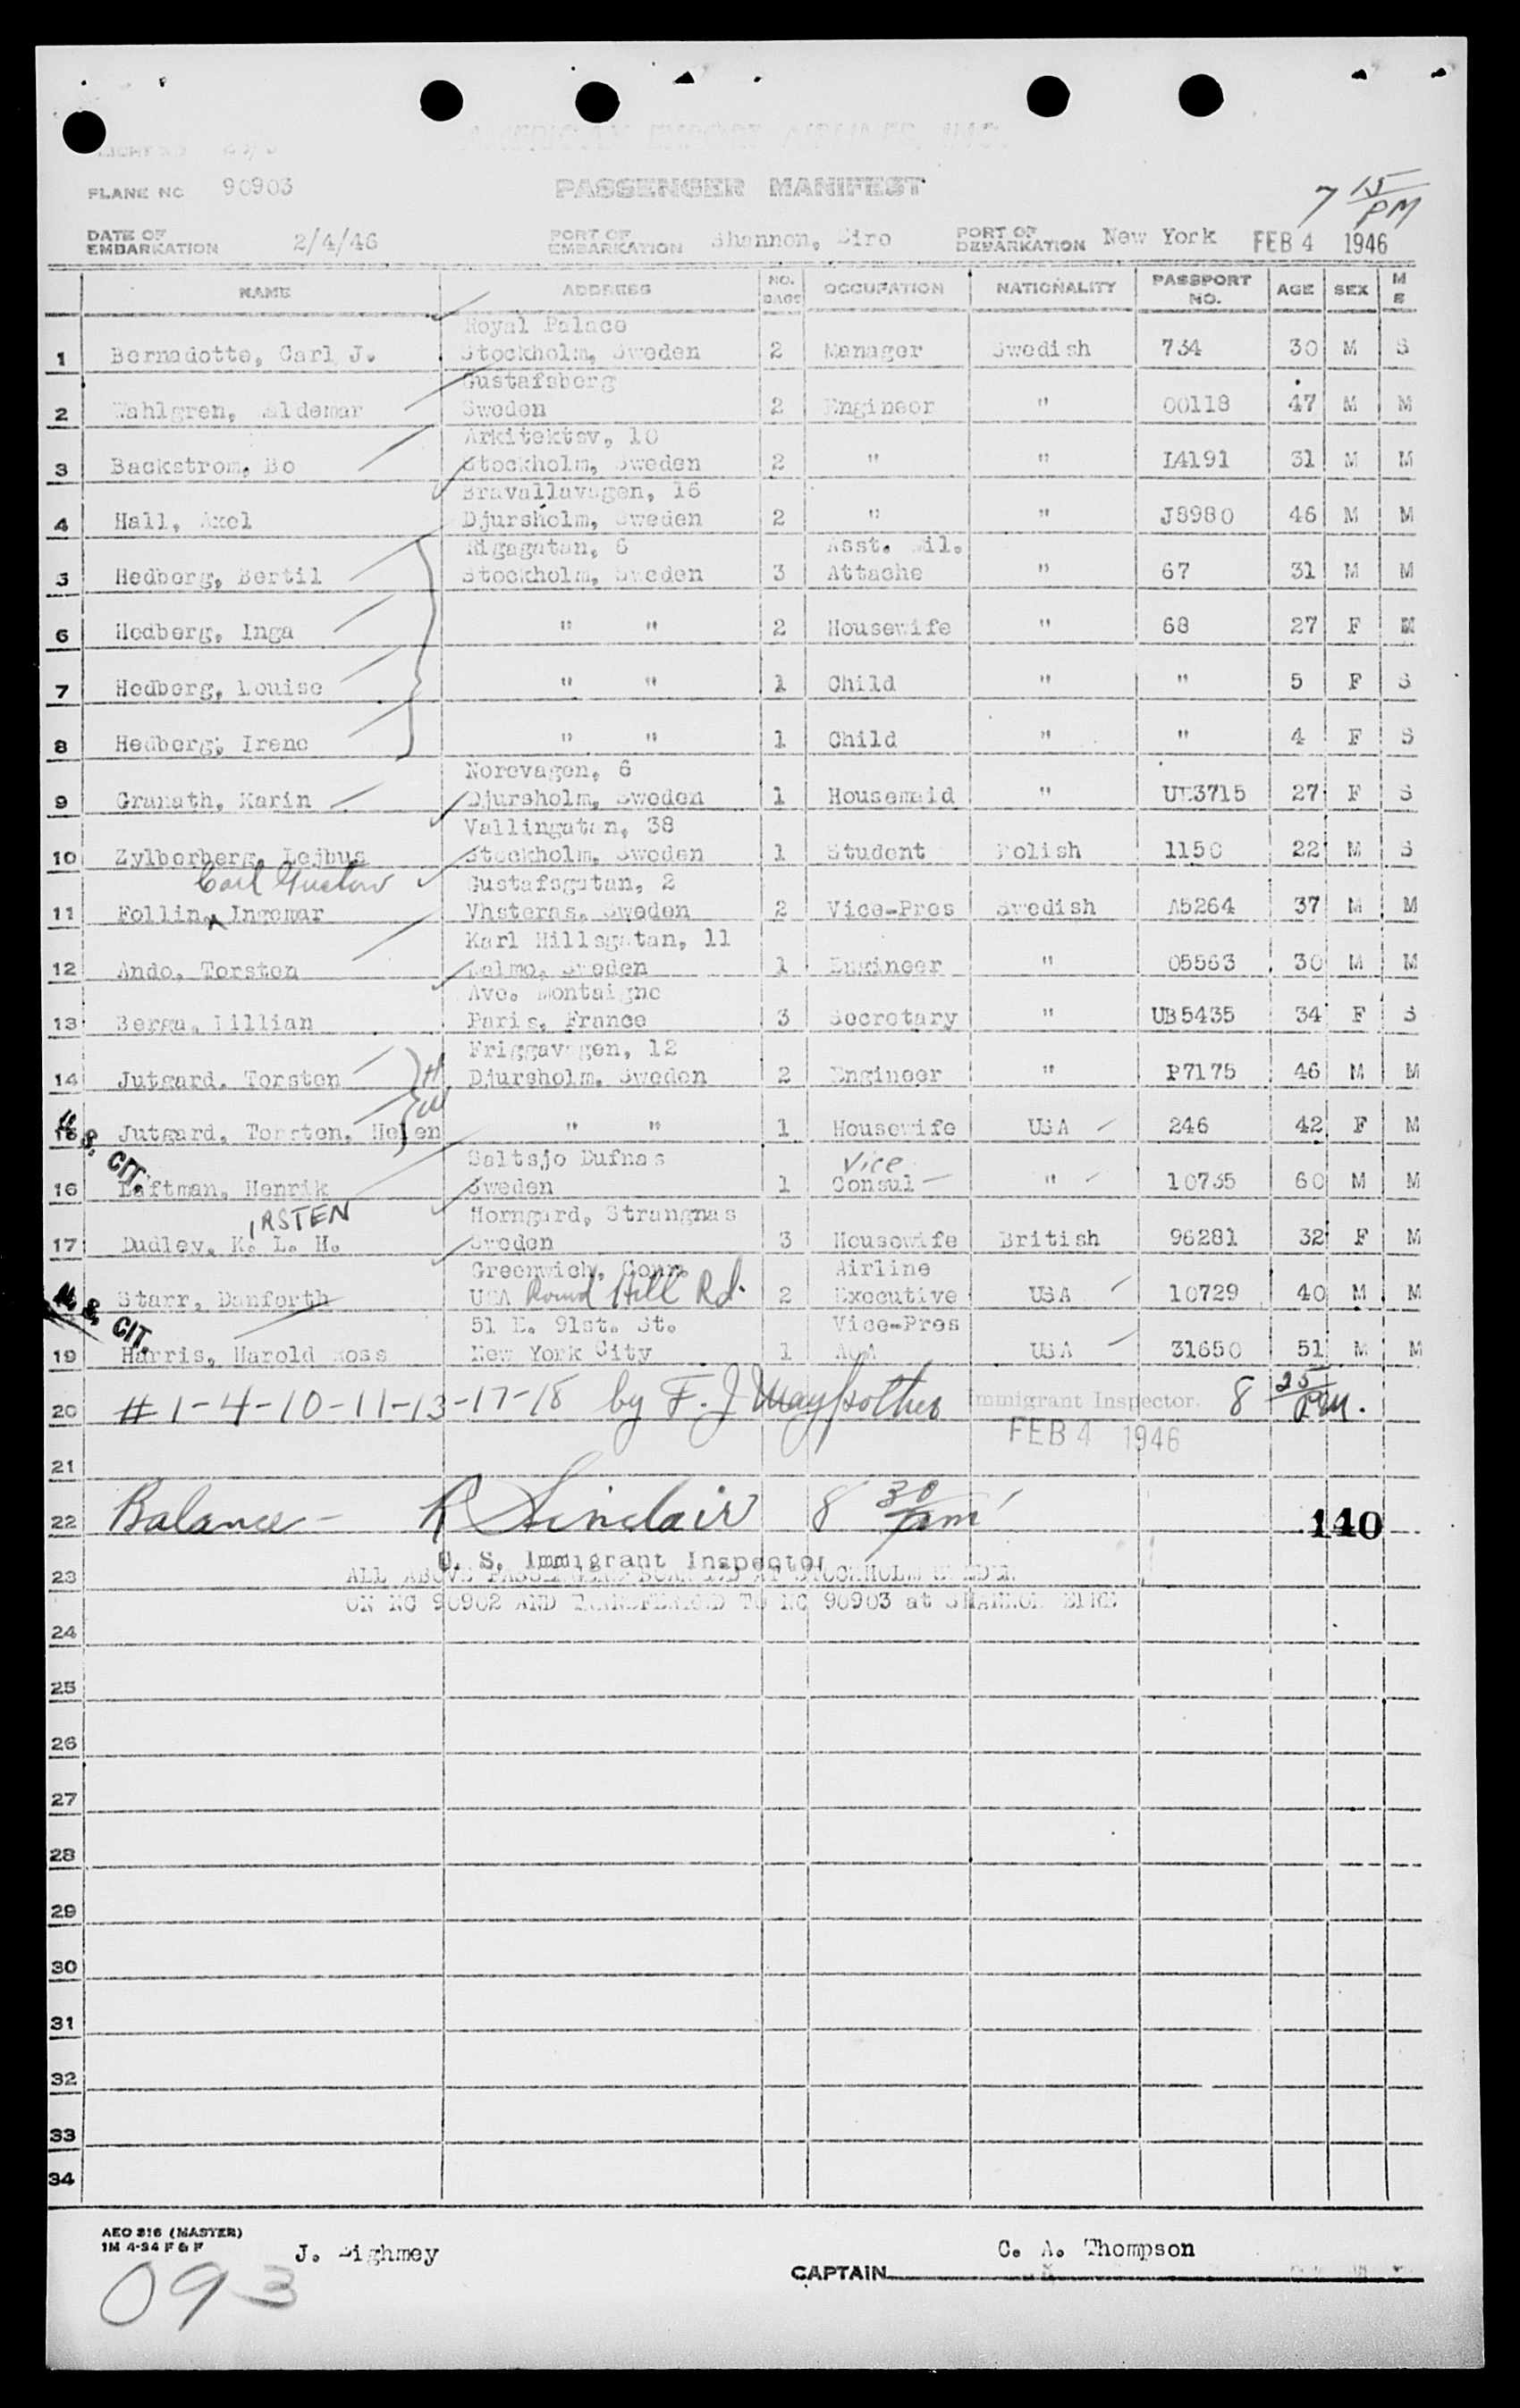 AMERICAN EXPORT AIRLINES, INC.
PLANE NC 90903
PASSENGER MANIFEST
7 15 PM
DATE OF EMBARKATION 2/4/46 PORT OF EMBARKATION Shannon, Eire PORT OF DEBARKATION New York FEB 4 1946
NAME ADDRESS NO. BAGS OCCUPATION NATIONALITY PASSPORT NO. AGE SEX M S
Royal Palace
1 Bernadotte, Carl J. Stockholm, Sweden 2 Manager Swedish 734 30 M S
Gustafsberg
2 Wahlgren, Waldemar Sweden 2 Engineer " 00118 47 M M
Arkitektsv, 10
3 Backstrom, Bo Stockholm, Sweden 2 " " I4191 31 M M
Bravallavagen, 16
4 Hall, Axel Djursholm, Sweden 2 " " J8980 46 M M
Rigagatan, 6 Asst. Mil.
5 Hedberg, Bertil Stockholm, Sweden 3 Attache " 67 31 M M
6 Hedberg, Inga " " 2 Housewife " 68 27 F M
7 Hedberg, Louise " " 1 Child " " 5 F S
8 Hedberg, Irene " " 1 Child " " 4 F S
Norevagen, 6
9 Granath, Karin Djursholm, Sweden 1 Housemaid " UE3715 27 F S
Vallingatan, 38
10 Zylberberg, Lejbus Stockholm, Sweden 1 Student Polish 1150 22 M S
Carl Gustav Gustafsgatan, 2
11 Follin, Ingemar Vhsteras, Sweden 2 Vice-Pres Swedish A5264 37 M M
Karl Hillsgatan, 11
12 Ando, Torsten Malmo, Sweden 1 Engineer " 05563 30 M M
Ave. Montaigne
13 Berga, Lillian Paris, France 3 Secretary " UB5435 34 F S
Friggavagen, 12
14 Jutgard, Torsten H Djursholm, Sweden 2 Engineer " P7175 46 M M
W
15 Jutgard, Torsten, Helen " " 1 Housewife USA 246 42 F M
U.S. CIT. Saltsjo Dufnas Vice
16 Luftman, Henrik Sweden 1 Consul " 10735 60 M M
IRSTEN Horngard, Strangnas
17 Dudley, K. L. H. Sweden 3 Housewife British 96281 32 F M
Greenwich, Conn. Airline
18 Starr, Danforth USA Round Hill Rd. 2 Executive USA 10729 40 M M
U.S. CIT. 51 E. 91st. St. Vice-Pres
19 Harris, Harold Ross New York City 1 AOA USA 31650 51 M M
20 #1-4-10-11-13-17-18 by F. J. Immigrant Inspector. 8 25 PM.
FEB 4 1946
21
22 Balance - R Sinclair 8 30 pm 140
U. S. Immigrant Inspector
23 ALL ABOVE PASSENGERS BOARDED AT STOCKHOLM SWEDEN
ON NC 90902 AND TRANSFERRED TO NC 90903 at SHANNON EIRE
24
25
26
27
28
29
30
31
32
33
34
AEO 316 (MASTER)
1M 4-34 F & F
J. Dighmey
C. A. Thompson
CAPTAIN
093